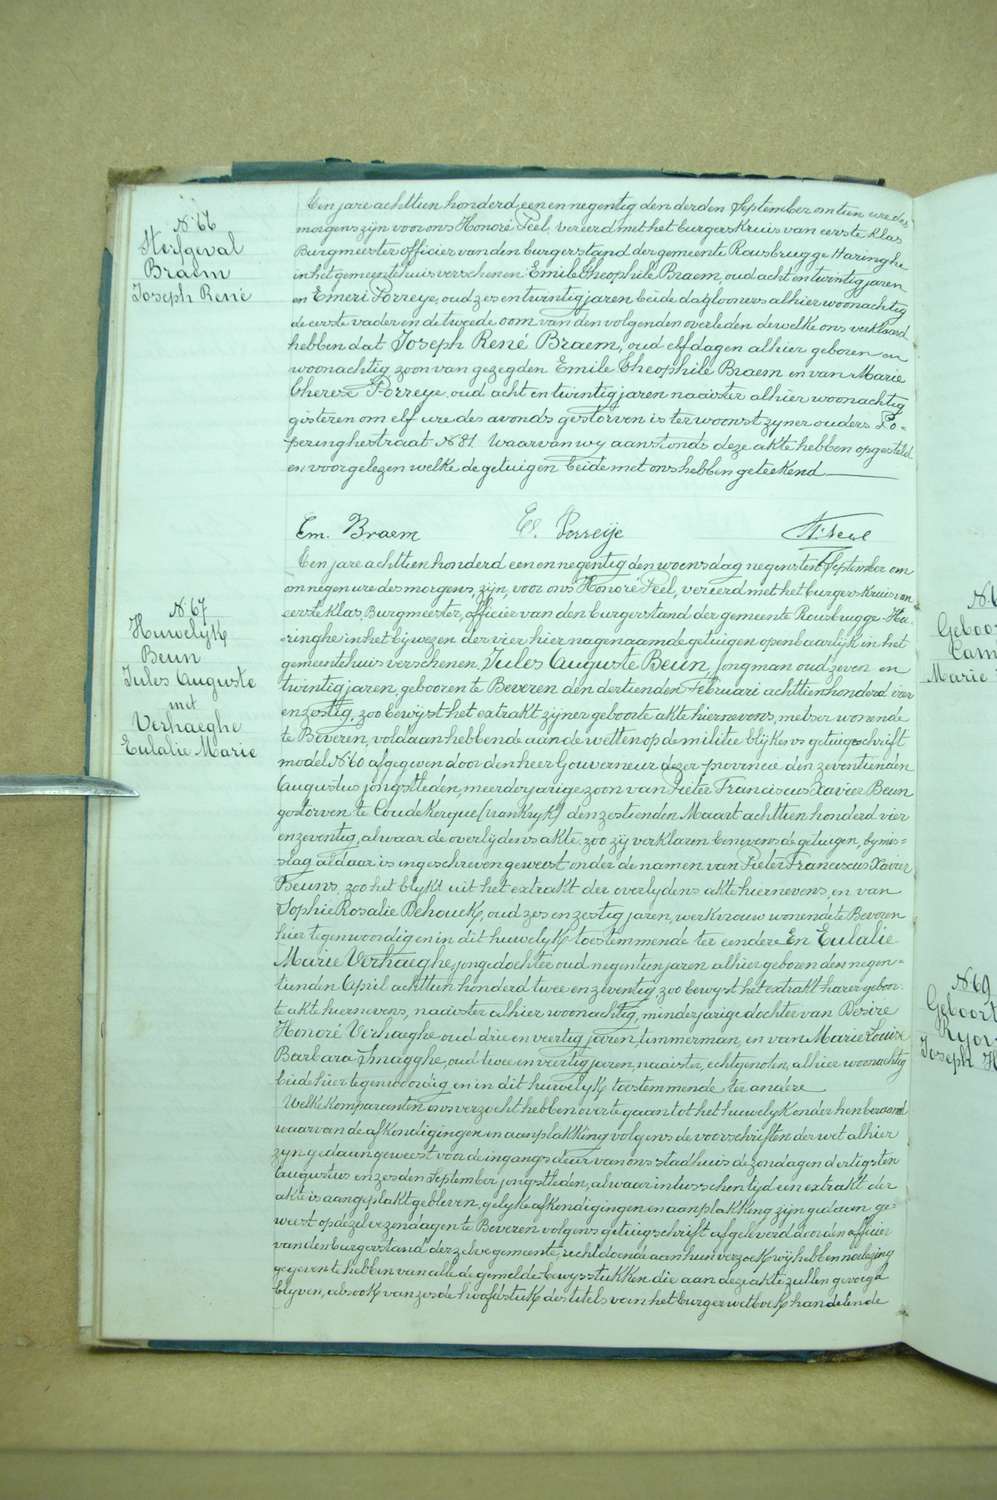 N. 66
Sterfgeval
Braem
Joseph René
Een jare achttien honderd een en negentig den derden September om tien ure des
morgens zijn voor ons Honoré Peel, vereerd met het burgerskruis van eerste klas
Burgmeester officier van den burgerstand der gemeente Rousbrugge Haringhe
in het gemeentehuis verschenen Emile Theophile Braem, oud acht en twintig jaren
en Emeri Porreye, oud zes en twintig jaren beide daglooners alhier woonachtig
de eerste vader en de tweede oom van den volgenden overleden dewelke ons verklaard
hebben dat Joseph René Braem, oud elf dagen alhier geboren en
woonachtig zoon van gezegden Emile Theophile Braem en van Marie
Therese Porreye, oud acht en twintig jaren naaister alhier woonachtig
gisteren om elf ure des avonds gestorven is ter woonst zyner ouders Po-
peringhestraat N. 81. Waarvan wy aanstonds deze akte hebben opgesteld
en voorgelezen welke de getuigen beide met ons hebben geteekend
Em. Braem E. Porreije H. Peel
N. 67
Huwelyk
Beun
Jules Auguste
met
Verhaeghe
Eulalie Marie
Een jare achttien honderd een en negentig den woensdag negensten September om
om negen ure des morgens, zijn, voor ons Honoré Peel, vereerd met het burgerskruis van
eerste klas, Burgmeester, officier van den burgerstand der gemeente Rousbrugge Ha-
ringhe in het bijwezen der vier hier nagenaamde getuigen openbaarlijk in het
gemeentehuis verschenen, Jules Auguste Beun, jongman oud zeven en
twintig jaren, gebooren te Beveren den dertienden Februari achttien honderd vier
en zestig, zoo bewyst het extrakt zijner geboorte akte hiernevens, metser wonende
te Beveren, voldaan hebbende aan de wetten op de militie blijkens getuigschrift
model N. 60 afgegeven door den heer Gouverneur dezer provincie den zeventienden
Augustus jongstleden, meerderjarige zoon van Pieter Franciscus Xavier Beun
gestorven te Coudekerque (Frankryk) den zestienden Maart achttien honderd vier
en zeventig, alwaar de overlijdens akte, zoo zij verklaren benevens de getuigen, by mis-
slag aldaar is ingeschreven geweest onder de namen van Pieter Franciscus Xavier
Beuns, zoo het blykt uit het extrakt der overlydens akte hiernevens, en van
Sophie Rosalie Dehouck, oud zes en zestig jaren, werkvrouw wonende te Beveren
hier tegenwoordig en in dit huwelyk toestemmende ter eendere En Eulalie
Marie Verhaeghe, jongedochter oud negentien jaren alhier geboren den negen-
tienden April achttien honderd twee en zeventig, zoo bewyst het extrakt harer geboor-
te akte hiernevens, naaister alhier woonachtig, minderjarige dochter van Desiré
Honoré Verhaeghe oud drie en veertig jaren, timmerman, en van Marie Louise
Barbara Smagghe, oud twee en veertig jaren, naaister, echtgenoten, alhier woonachtig
beide hier tegenwoordig en in dit huwelyk toestemmende ter andere
Welke komparanten ons verzocht hebben over te gaan tot het huwelyk onder hen beraamd
waarvan de afkondigingen en aanplakking volgens de voorschriften der wet alhier
zyn gedaan geweest voor de ingangsdeur van ons stadhuis de zondagen dertigsten
Augustus en zesden September jongstleden, alwaar intusschentyd een extrakt der
akte is aangeplakt gebleven, gelyke afkondigingen en aanplakking zijn gedaan ge-
weest op dezelve zondagen te Beveren volgens getuigschrift afgeleverd door den officier
van den burgerstand der zelve gemeente, rechtdoende aan hun verzoek wij hebben voorlezing
gegeven te hebben van alle de gemelde bewysstukken die aan deze akte zullen gevoegd
blyven, alsook van zesde hoofdstuk des titels van het burgerwetboek handelende
Geboor
Cam
Marie
N. 69
Geboort
Ryo
Joseph H